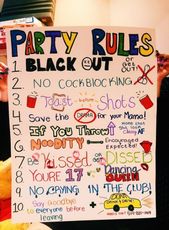 PARTY RULES
1. BLACK OUT or GET OUT!
2. NO COCKBLOCKING
3. Toast before Shots
4. Save the DRAMA for your Mama!
5. If You Throw
6. NOODITY =
7. Be KISSED not DISSED
8. YOU'RE 17 Dancing QUEEN
9. NO CRYING IN THE CLUB!
10. Say Goodbye to everyone before leaving